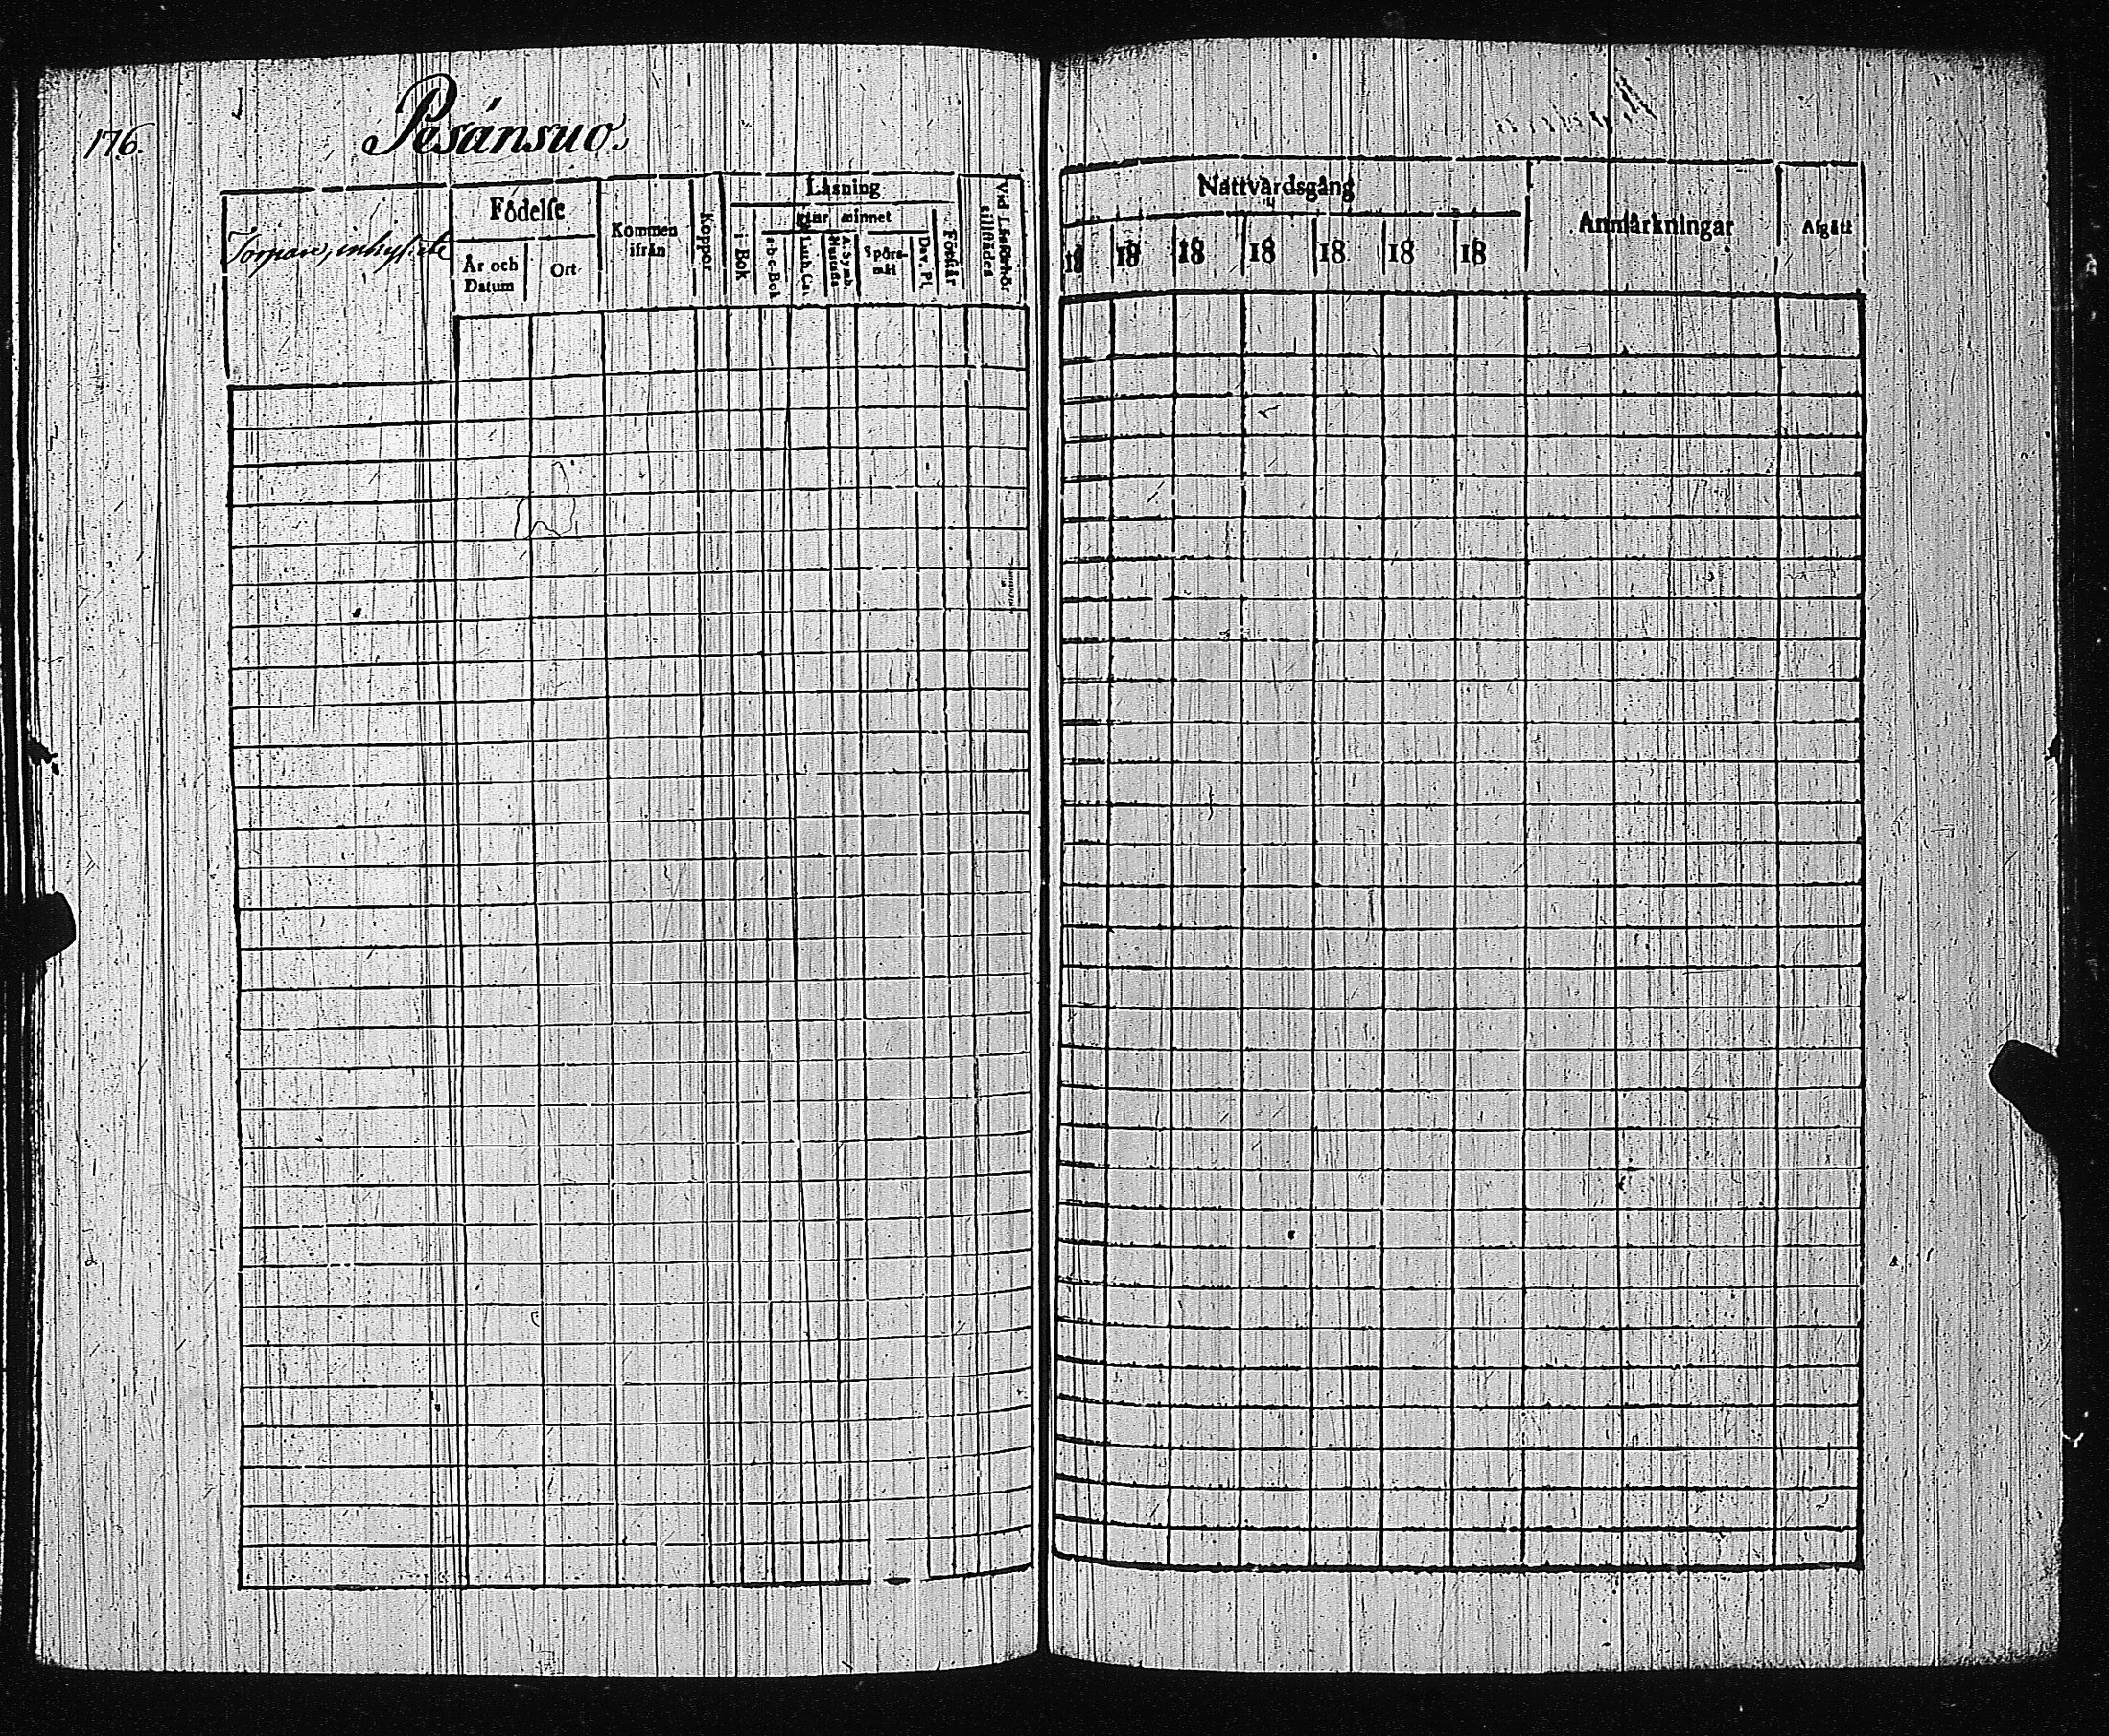 176.
Pesänsuo.
Torpare, inhyste
Födelse
År och Datum
Ort
Kommen ifrån
Koppor
Läsning
i Bok
utur minnet
a-b-c-Bok
Luth. Ca.
A. Symb.
Spörsmål
Dav. Pl.
Förstår
Vid Läseförhör tillstädes
Nattvardsgång
18 18 18 18 18 18 18
Anmärkningar
Afgått